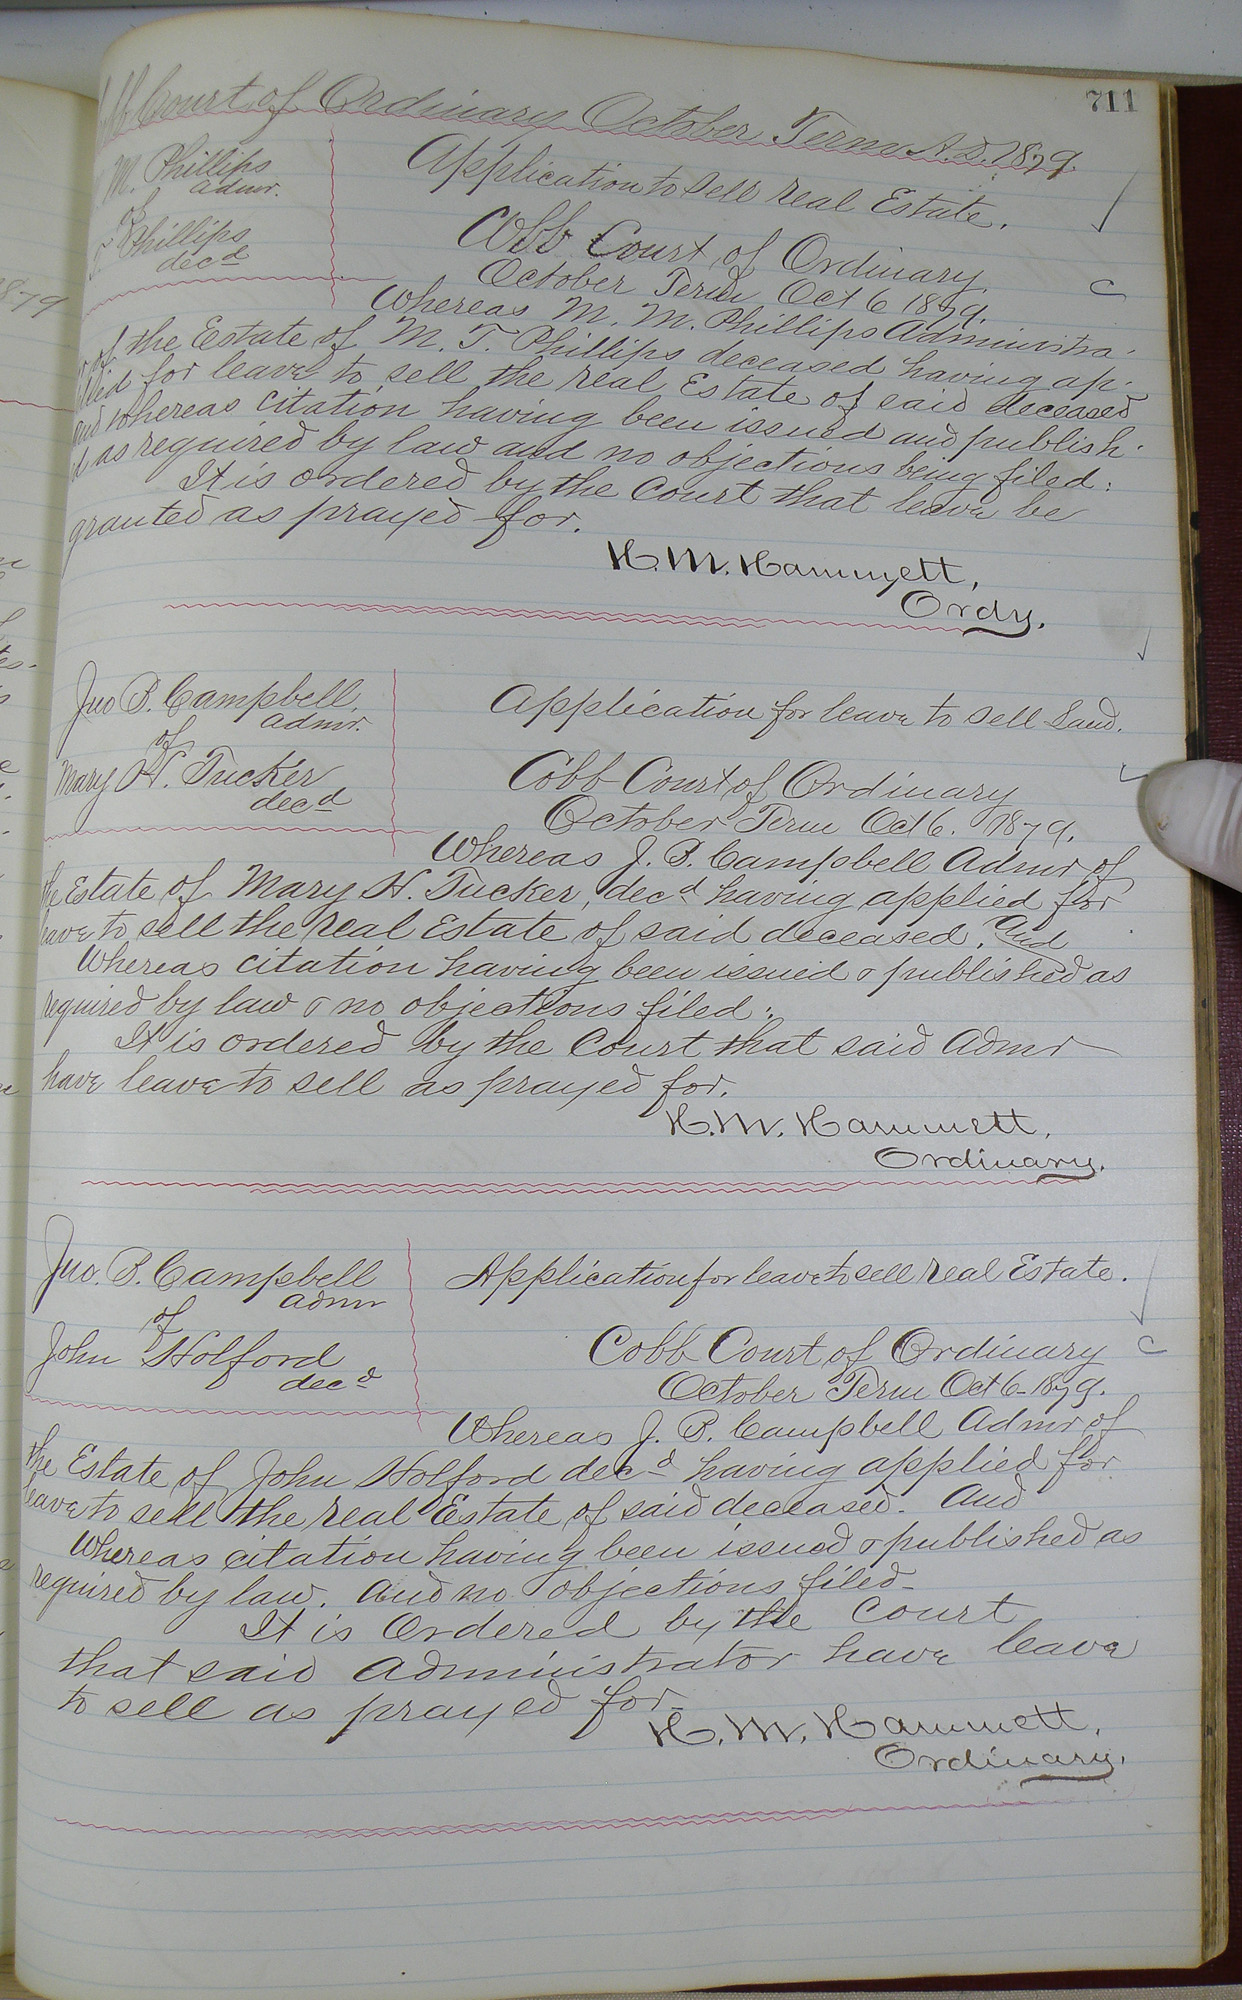 711
Court of Ordinary October Term A.D. 1879.
M. Phillips
Admr.
of
T. Phillips
decd
Application to sell real Estate.
Cobb Court of Ordinary
October Term Oct 6 1879.
Whereas M. M. Phillips Administra-
of the Estate of M. T. Phillips deceased having ap-
plied for leave to sell the real Estate of said deceased
and whereas citation having been issued and publish-
ed as required by law and no objections being filed:
It is ordered by the Court that leave be
granted as prayed for.
H. M. Hammett,
Ordy.
Jno B. Campbell,
Admr.
of
Mary H. Tucker
decd
Application for leave to sell Land.
Cobb Court of Ordinary
October Term Oct 6. 1879.
Whereas J. B. Campbell Admr of
the Estate of Mary H. Tucker, decd having applied for
leave to sell the real Estate of said deceased. And
Whereas citation having been issued & published as
required by law & no objections filed:
It is ordered by the Court that said Admr
have leave to sell as prayed for.
H. M. Hammett,
Ordinary.
Jno. B. Campbell
Admr
of
John Holford
decd
Application for leave to sell real Estate.
Cobb Court of Ordinary
October Term Oct 6 - 1879.
Whereas J. B. Campbell Admr of
the Estate of John Holford decd having applied for
leave to sell the real Estate of said deceased. And
Whereas citation having been issued & published as
required by law. And no objections filed-
It is Ordered by the Court
that said Administrator have leave
to sell as prayed for-
H. M. Hammett,
Ordinary.